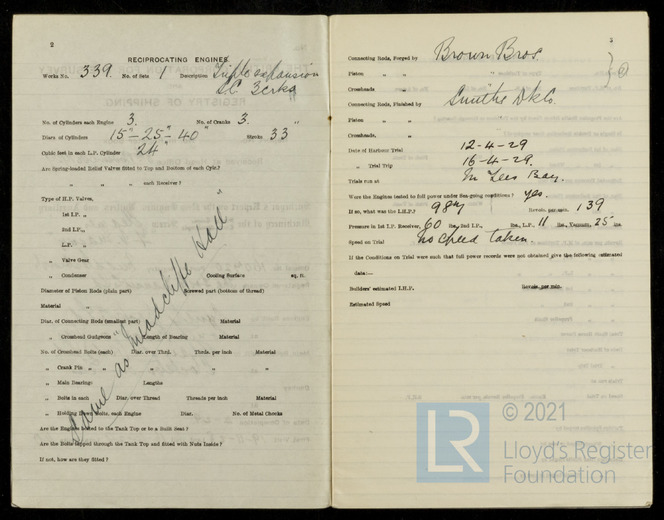 2
RECIPROCATING ENGINES.
Works No. 339. No. of Sets 1 Description Triple expansion
No. of Cylinders each Engine 3. No. of Cranks 3.
Diars. of Cylinders 15" - 25" - 40" Stroke 33"
Cubic feet in each L.P. Cylinder 24
Are Spring-loaded Relief Valves fitted to Top and Bottom of each Cylr.?
„ „ „ each Receiver?
Type of H.P. Valves,
1st I.P. „
2nd I.P. „
L.P. „
„ Valve Gear
„ Condenser Cooling Surface sq. ft.
Diameter of Piston Rods (plain part) Screwed part (bottom of thread)
Material „
Diar. of Connecting Rods (smallest part) Material
„ Crosshead Gudgeons Length of Bearing Material
No. of Crosshead Bolts (each) Diar. over Thrd. Thrds. per inch Material
„ Crank Pin „ „ „ „ „
„ Main Bearings Lengths
„ Bolts in each Diar. over Thread Threads per inch Material
„ Holding Down Bolts, each Engine Diar. No. of Metal Chocks
Are the Engines bolted to the Tank Top or to a Built Seat?
Are the Bolts tapped through the Tank Top and fitted with Nuts Inside?
If not, how are they fitted?
Same as "Headcliffe Hall"
3
Connecting Rods, Forged by Brown Bros.
Piston „ „
Crossheads „
Connecting Rods, Finished by Smiths Dk Co.
Piston „ „
Crossheads, „
Date of Harbour Trial 12-4-29
„ Trial Trip 16-4-29.
Trials run at In Tees Bay.
Were the Engines tested to full power under Sea-going conditions? yes.
If so, what was the I.H.P.? 984 Revols. per min. 139
Pressure in 1st I.P. Receiver, 60 lbs., 2nd I.P., lbs., L.P., 11 lbs., Vacuum, 25 ins.
Speed on Trial No speed taken.
If the Conditions on Trial were such that full power records were not obtained give the following estimated
data:—
Builders' estimated I.H.P. Revols. per min.
Estimated Speed
LR
© 2021
Lloyd's Register
Foundation